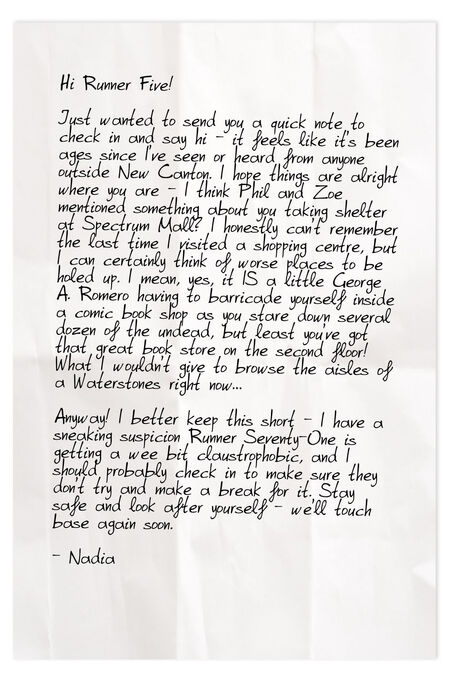 Hi Runner Five!
Just wanted to send you a quick note to
check in and say hi - it feels like it's been
ages since I've seen or heard from anyone
outside New Canton. I hope things are alright
where you are - I think Phil and Zoe
mentioned something about you taking shelter
at Spectrum Mall? I honestly can't remember
the last time I visited a shopping centre, but
I can certainly think of worse places to be
holed up. I mean, yes, it IS a little George
A. Romero having to barricade yourself inside
a comic book shop as you stare down several
dozen of the undead, but least you've got
that great book store on the second floor!
What I wouldn't give to browse the aisles of
a Waterstones right now...
Anyway! I better keep this short - I have a
sneaking suspicion Runner Seventy-One is
getting a wee bit claustrophobic, and I
should probably check in to make sure they
don't try and make a break for it. Stay
safe and look after yourself - we'll touch
base again soon.
- Nadia